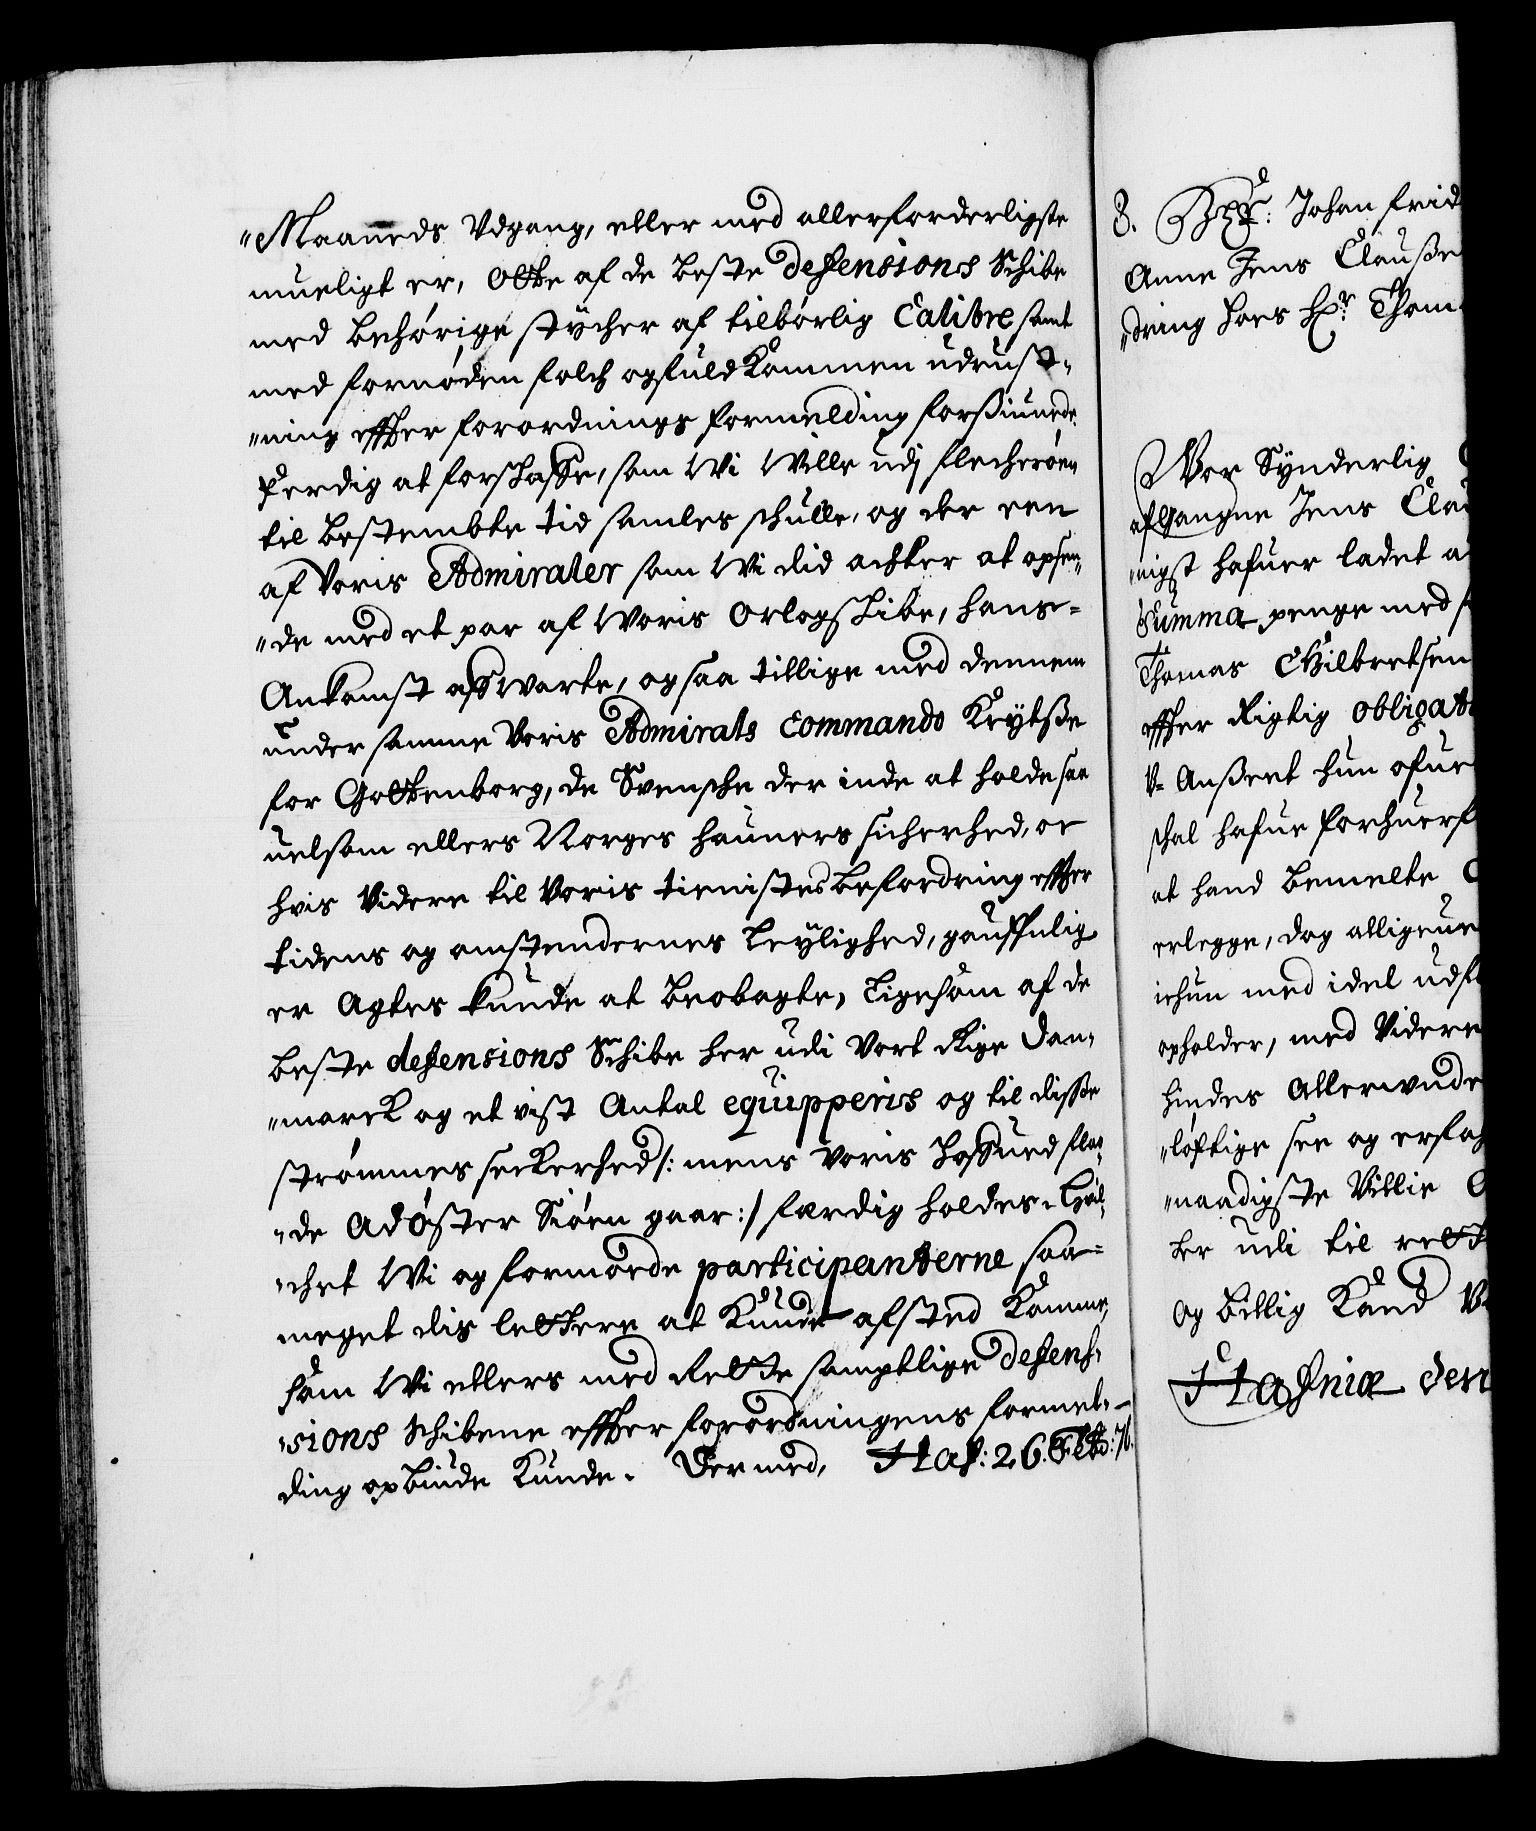 "Maaneds Udgang, eller med allerforderligste
mueligt er, Otte af de beste defensions Schibe
med behørige stycher af tilbørlig Calibre samt
med fornøden folch og fuldkommen udrust-
"ning effter forordnings formelding forsiunede
ferdig at forskaffe, som Wi Wille udj flecherøen
til bestembte tid samles schulle, og der een
af Voris Admiraler som Wi did achter at opsen-
"de med et par af Woris Orlogskibe, hans-
Ankomst affwarte, og saa tillige med dennem
under samme Voris Admirals Commando Krytsse
for Gottenborg, de Svensche der inde at holde saa
uelsom ellers Norges hauners sicherhed, oc
hvis Videre til Voris tienistes befordring effter
tidens og omstendernes leylighed, gauffnlig
er Agtes kunde at beobagte, Ligesom af de
beste defensions Schibe her udi Vort Rige Dan-
"marck og et vist Antal equipperis og til disse
strømmes seckerhed /: mens Voris hoffued flaa-
"de ad Øster Siøen gaar :/ færdig holdes, Huil-
"chet Wi og formode participanterne saa-
meget dis lettere at Kunde afsted komme,
som Wi ellers med Rette samptlige defens-
"sions Schibene effter forordningens formel-
ding opbiude Kunde. Dermed, Haf: 26. Febr: 76.
8. Johan Frid
Anne Jens Clauße
"dring hos Hr Thom
Vor Synderlig
afgangne Jens Clau
"nigst hafuer ladet a
Summa penge med
Thomas Gilbertsen
effter Rigtig obligat
Anßeet hun ofue
schal hafue forhuerf
at hand bemelte
erlegge, dog alligeue
ichun med idel udfl
opholder, med Videre
hindes Allerunde
"løftige see og erfa
"naadigste Villie
ter udi til rett
og billig Kand
Hafniæ den